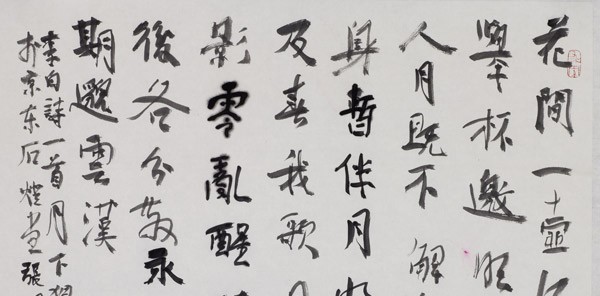 花間一壺
舉杯邀明
人月既不解
身暫伴月
及春我歌
影零亂醒
後各分散永
期邈雲漢
李白詩一首月下獨
於京东石